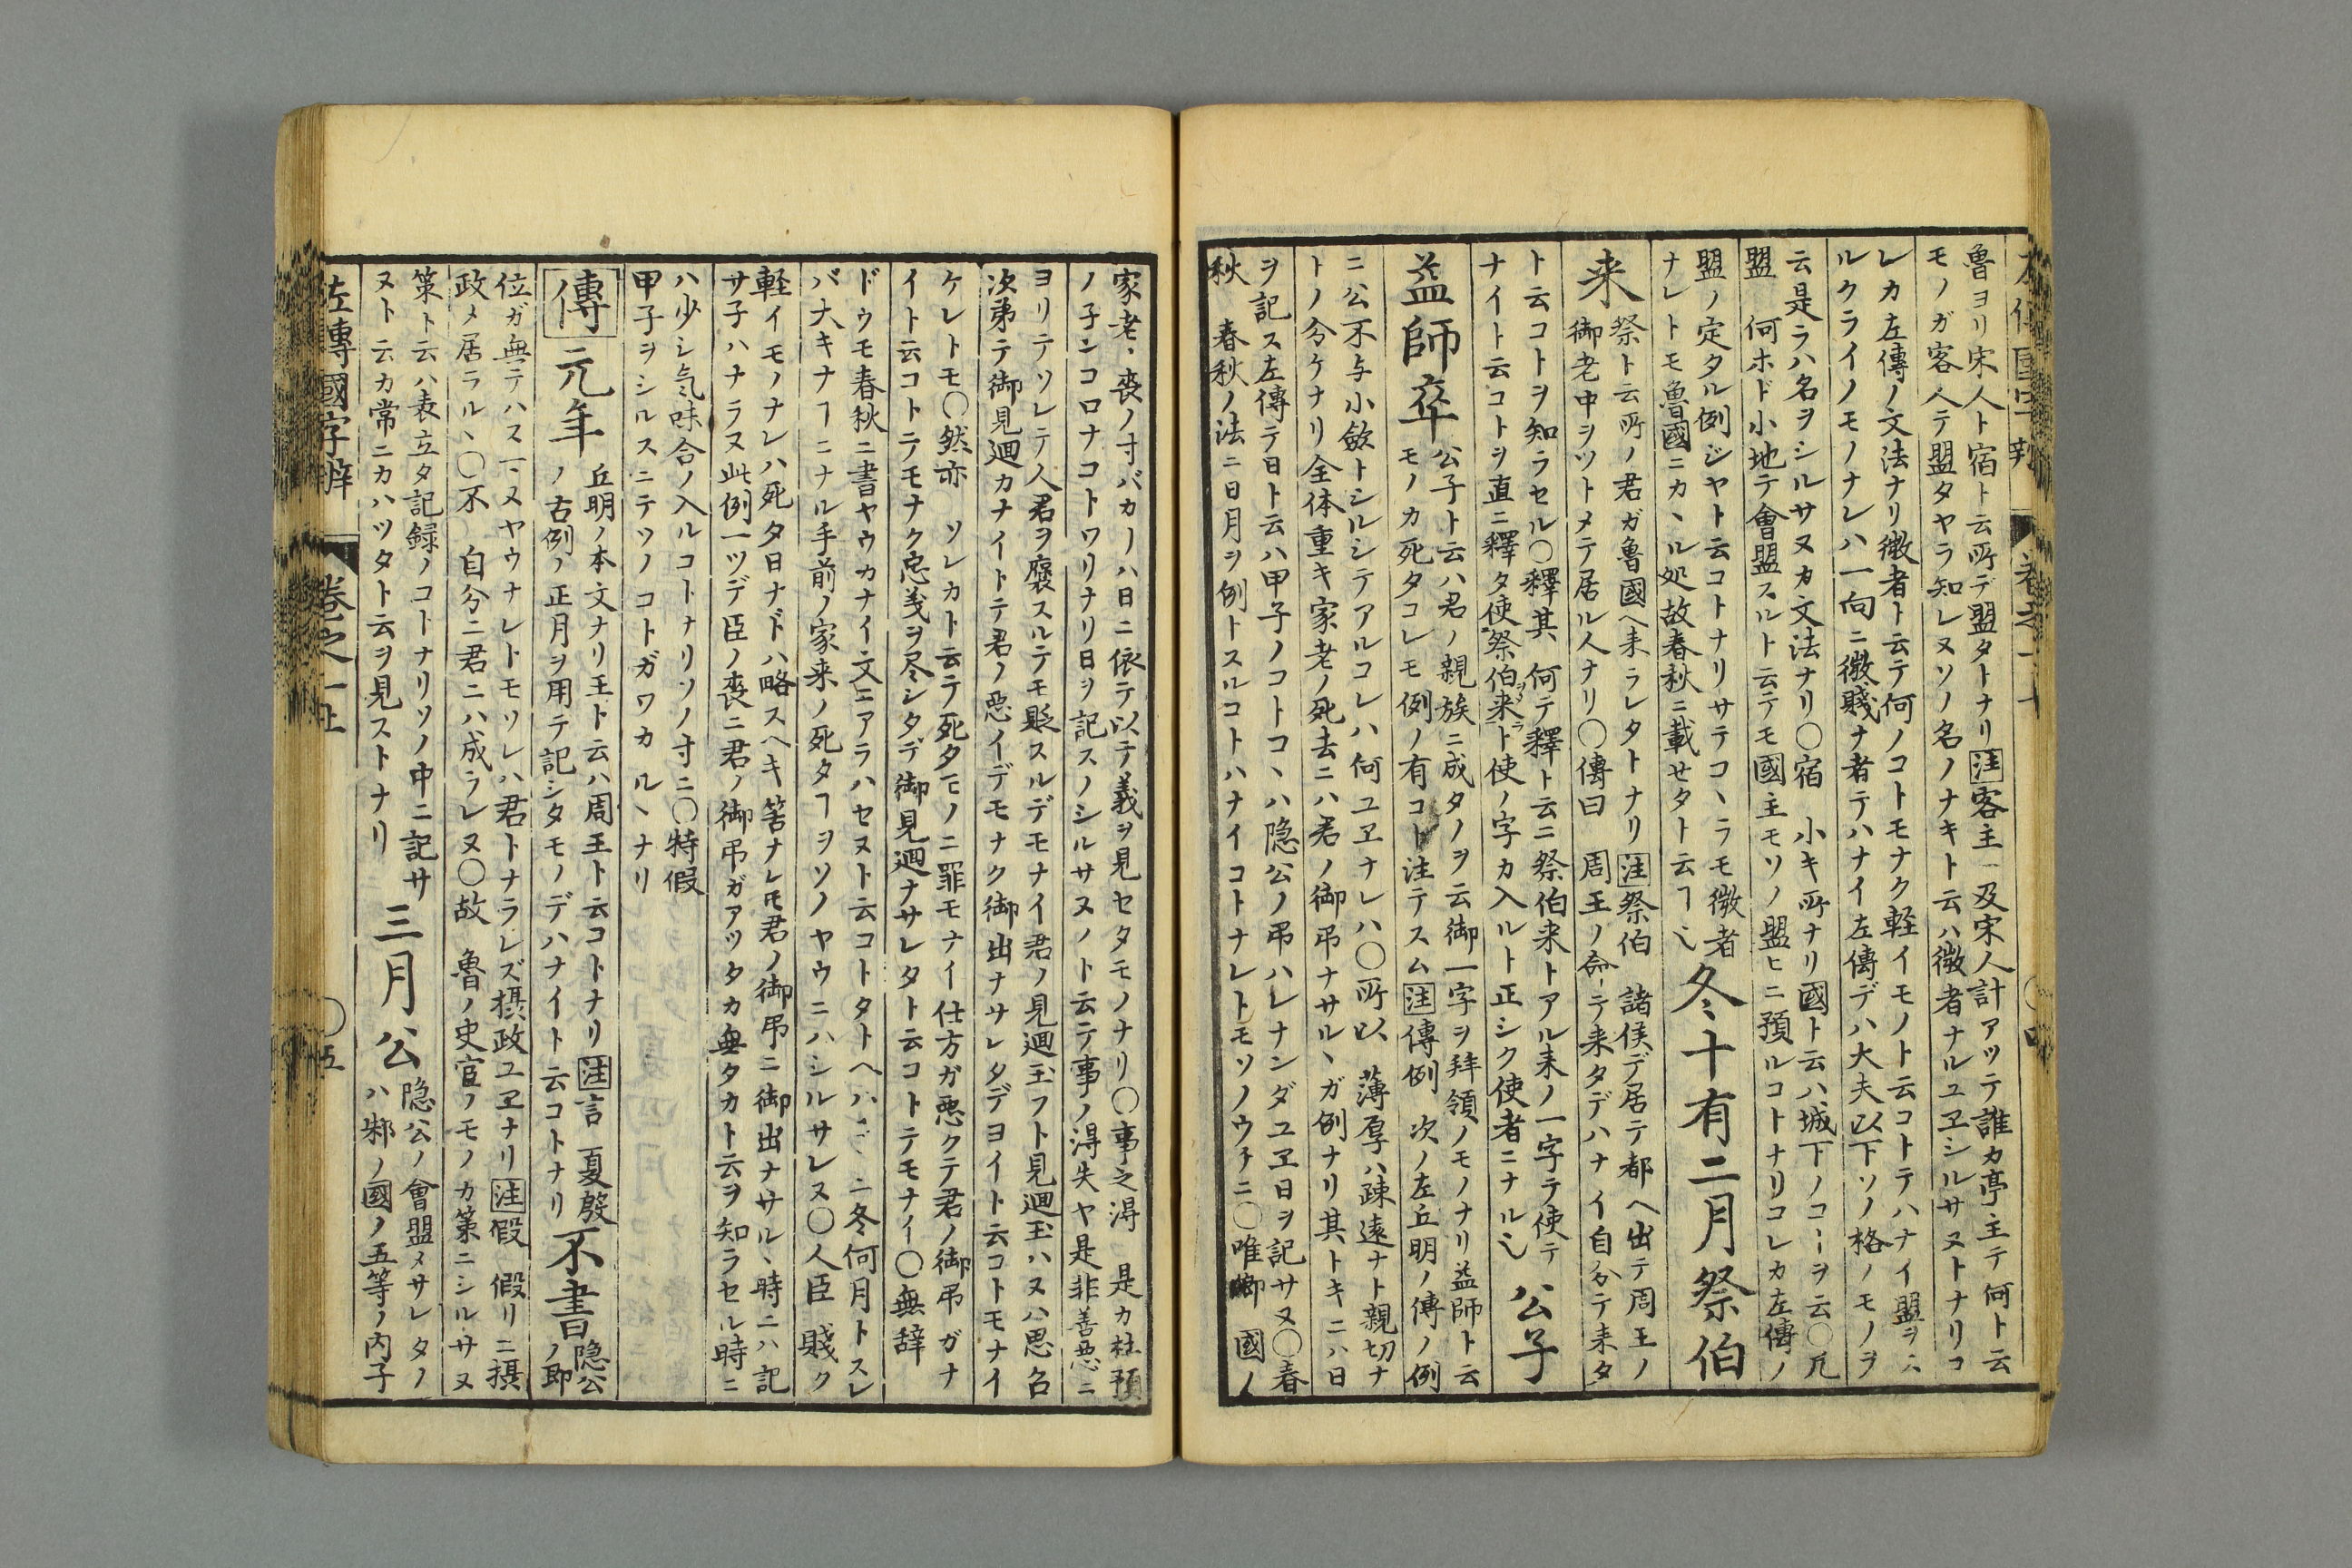 魯ヨリ宋人ト宿ト云所デ盟タトナリ 注 客主 及宋人計アツテ誰カ亭主テ何ト云
モノガ客人テ盟タヤラ知レヌソノ名ノナキト云ハ微者ナルユヱシルサヌトナリコ
レカ左傳ノ文法ナリ微者ト云テ何ノコトモナク軽イモノト云コトテハナイ盟ヲ云
ルクライノモノナレハ一向ニ微賤ナ者テハナイ左傳デハ大夫以下ソノ格ノモノヲ
云是ラハ名ヲシルサヌカ文法ナリ〇宿 小キ所ナリ國ト云ハ城下ノコーヲ云〇凡
盟 何ホド小地テ會盟スルト云テモ國主モソノ盟ヒニ預ルコトナリコレカ左傳ノ
盟ノ定タル例ジヤト云コトナリサテコヽラモ微者
ナレトモ魯國ニカヽル処故春秋ニ載セタト云ヿ也
冬十有二月祭伯
来
祭ト云所ノ君ガ魯國ヘ来ラレタトナリ 注 祭伯 諸侯デ居テ都ヘ出テ周王ノ
御老中ヲツトメテ居ル人ナリ〇傳曰 周王ノ命ーテ来タデハナイ自分テ来タ
ト云コトヲ知ラセル〇釋其 何テ釋ト云ニ祭伯来トアル来ノ一字テ使テ
ナイト云コトヲ直ニ釋タ使祭伯来ラトト使ノ字カ入ルト正シク使者ニナル也
公子
益師卒
公子ト云ハ君ノ親族ニ成タノヲ云御一字ヲ拜領ノモノナリ益師ト云
モノカ死タコレモ例ノ有コト注テスム 注 傳例 次ノ左丘明ノ傳ノ例
ニ公不与小斂トシルシテアルコレハ何ユヱナレハ〇所以 薄厚ハ疎遠ナト親切ナ
トノ分ケナリ全体重キ家老ノ死去ニハ君ノ御吊ナサルヽガ例ナリ其トキニハ日
ヲ記ス左傳テ日ト云ハ甲子ノコトコヽハ隠公ノ吊ハレナンダユヱ日ヲ記サヌ〇春
秋 春秋ノ法ニ日月ヲ例トスルコトハナイコトナレトモソノウチニ〇唯卿 國ノ
家老ヽ喪ノ寸バカーハ日ニ依テ以テ義ヲ見セタモノナリ〇事之得 是カ杜預
ノ子ンコロナコトワリナリ日ヲ記スノシルサヌノト云テ事ノ得失ヤ是非善悪ニ
ヨリテソレテ人君ヲ褒スルテモ貶スルデモナイ君ノ見廻玉フト見廻玉ハヌハ思召
次第テ御見廻カナイトテ君ノ悪イデモナク御出ナサレタデヨイト云コトモナイ
ケレトモ〇然亦 ソレカト云テ死タモノニ罪モナイ仕方ガ悪クテ君ノ御吊ガナ
イト云コトテモナク忠義ヲ尽シタデ御見廻ナサレタト云コトテモナイー〇無辞
ドウモ春秋ニ書ヤウカナイ文ニアラハセヌト云コトタトヘハコヽニ冬何月トスレ
バ大キナヿニナル手前ノ家来ノ死タヿヲソノヤウニハシルサレヌ〇人臣 賤ク
軽イモノナレハ死タ日ナドハ略スヘキ筈ナレ𪜈君ノ御吊ニ御出ナサルヽ時ニハ記
サ子ハナラヌ此例一ツデ臣ノ喪ニ君ノ御吊ガアツタカ無タカト云ヲ知ラセル時ニ
ハ少シ気味合ノ入ルコトナリソノ寸ニ〇特假
甲子ヲシルスニテソノコトガワカルヽナリ
傳 元年
丘明ノ本文ナリ王ト云ハ周王ト云コトナリ 注 言 夏殷
ノ古例ノ正月ヲ用テ記シタモノデハナイト云コトナリ
不書
隠公
ノ即
位ガ無テハスーヽヌヤウナレトモソレハ君トナラレズ摂政ユヱナリ 注 假 假リニ摂
政メ居ラルヽ〇不 自分ニ君ニハ成ラレヌ〇故 魯ノ史官ノモノカ策ニシルサヌ
策ト云ハ表立タ記録ノコトナリソノ中ニ記サ
ヌト云カ常ニカハツタト云ヲ見ストナリ
三月公
隠公ノ會盟メサレタノ
ハ邾ノ國ノ五等ノ内子
左傳國字辨 巻之一上 〇五